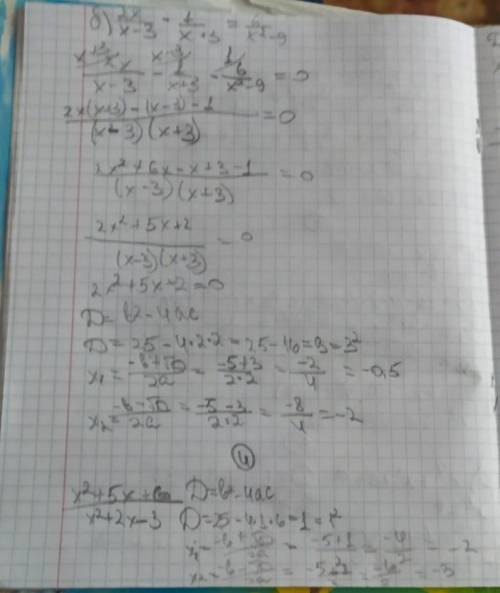 б) 2x/(x-3) - 1/(x+3) = 6/(x²-9)
2x/(x-3) - 1/(x+3) - 6/(x²-9) = 0
(2x(x+3)-(x-3)-1)/((x-3)(x+3)) = 0
(2x²+6x-x+3-1)/((x-3)(x+3)) = 0
(2x²+5x+2)/((x-3)(x+3)) = 0
2x²+5x+2=0
D = b²-4ac
D = 25-4·2·2=25-16=9=3²
x₁ = (-b+√D)/2a = (-5+3)/(2·2) = -2/4 = -0,5
x₂ = (-b-√D)/2a = (-5-3)/(2·2) = -8/4 = -2
4
(x²+5x+6)/(x²+2x-3) D=b²-4ac
D=25-4·1·6=1=1²
x₁ = (-b+√D)/2a = (-5+1)/2 = -4/2 = -2
x₂ = (-b-√D)/2a = (-5-1)/2 = -6/2 = -3